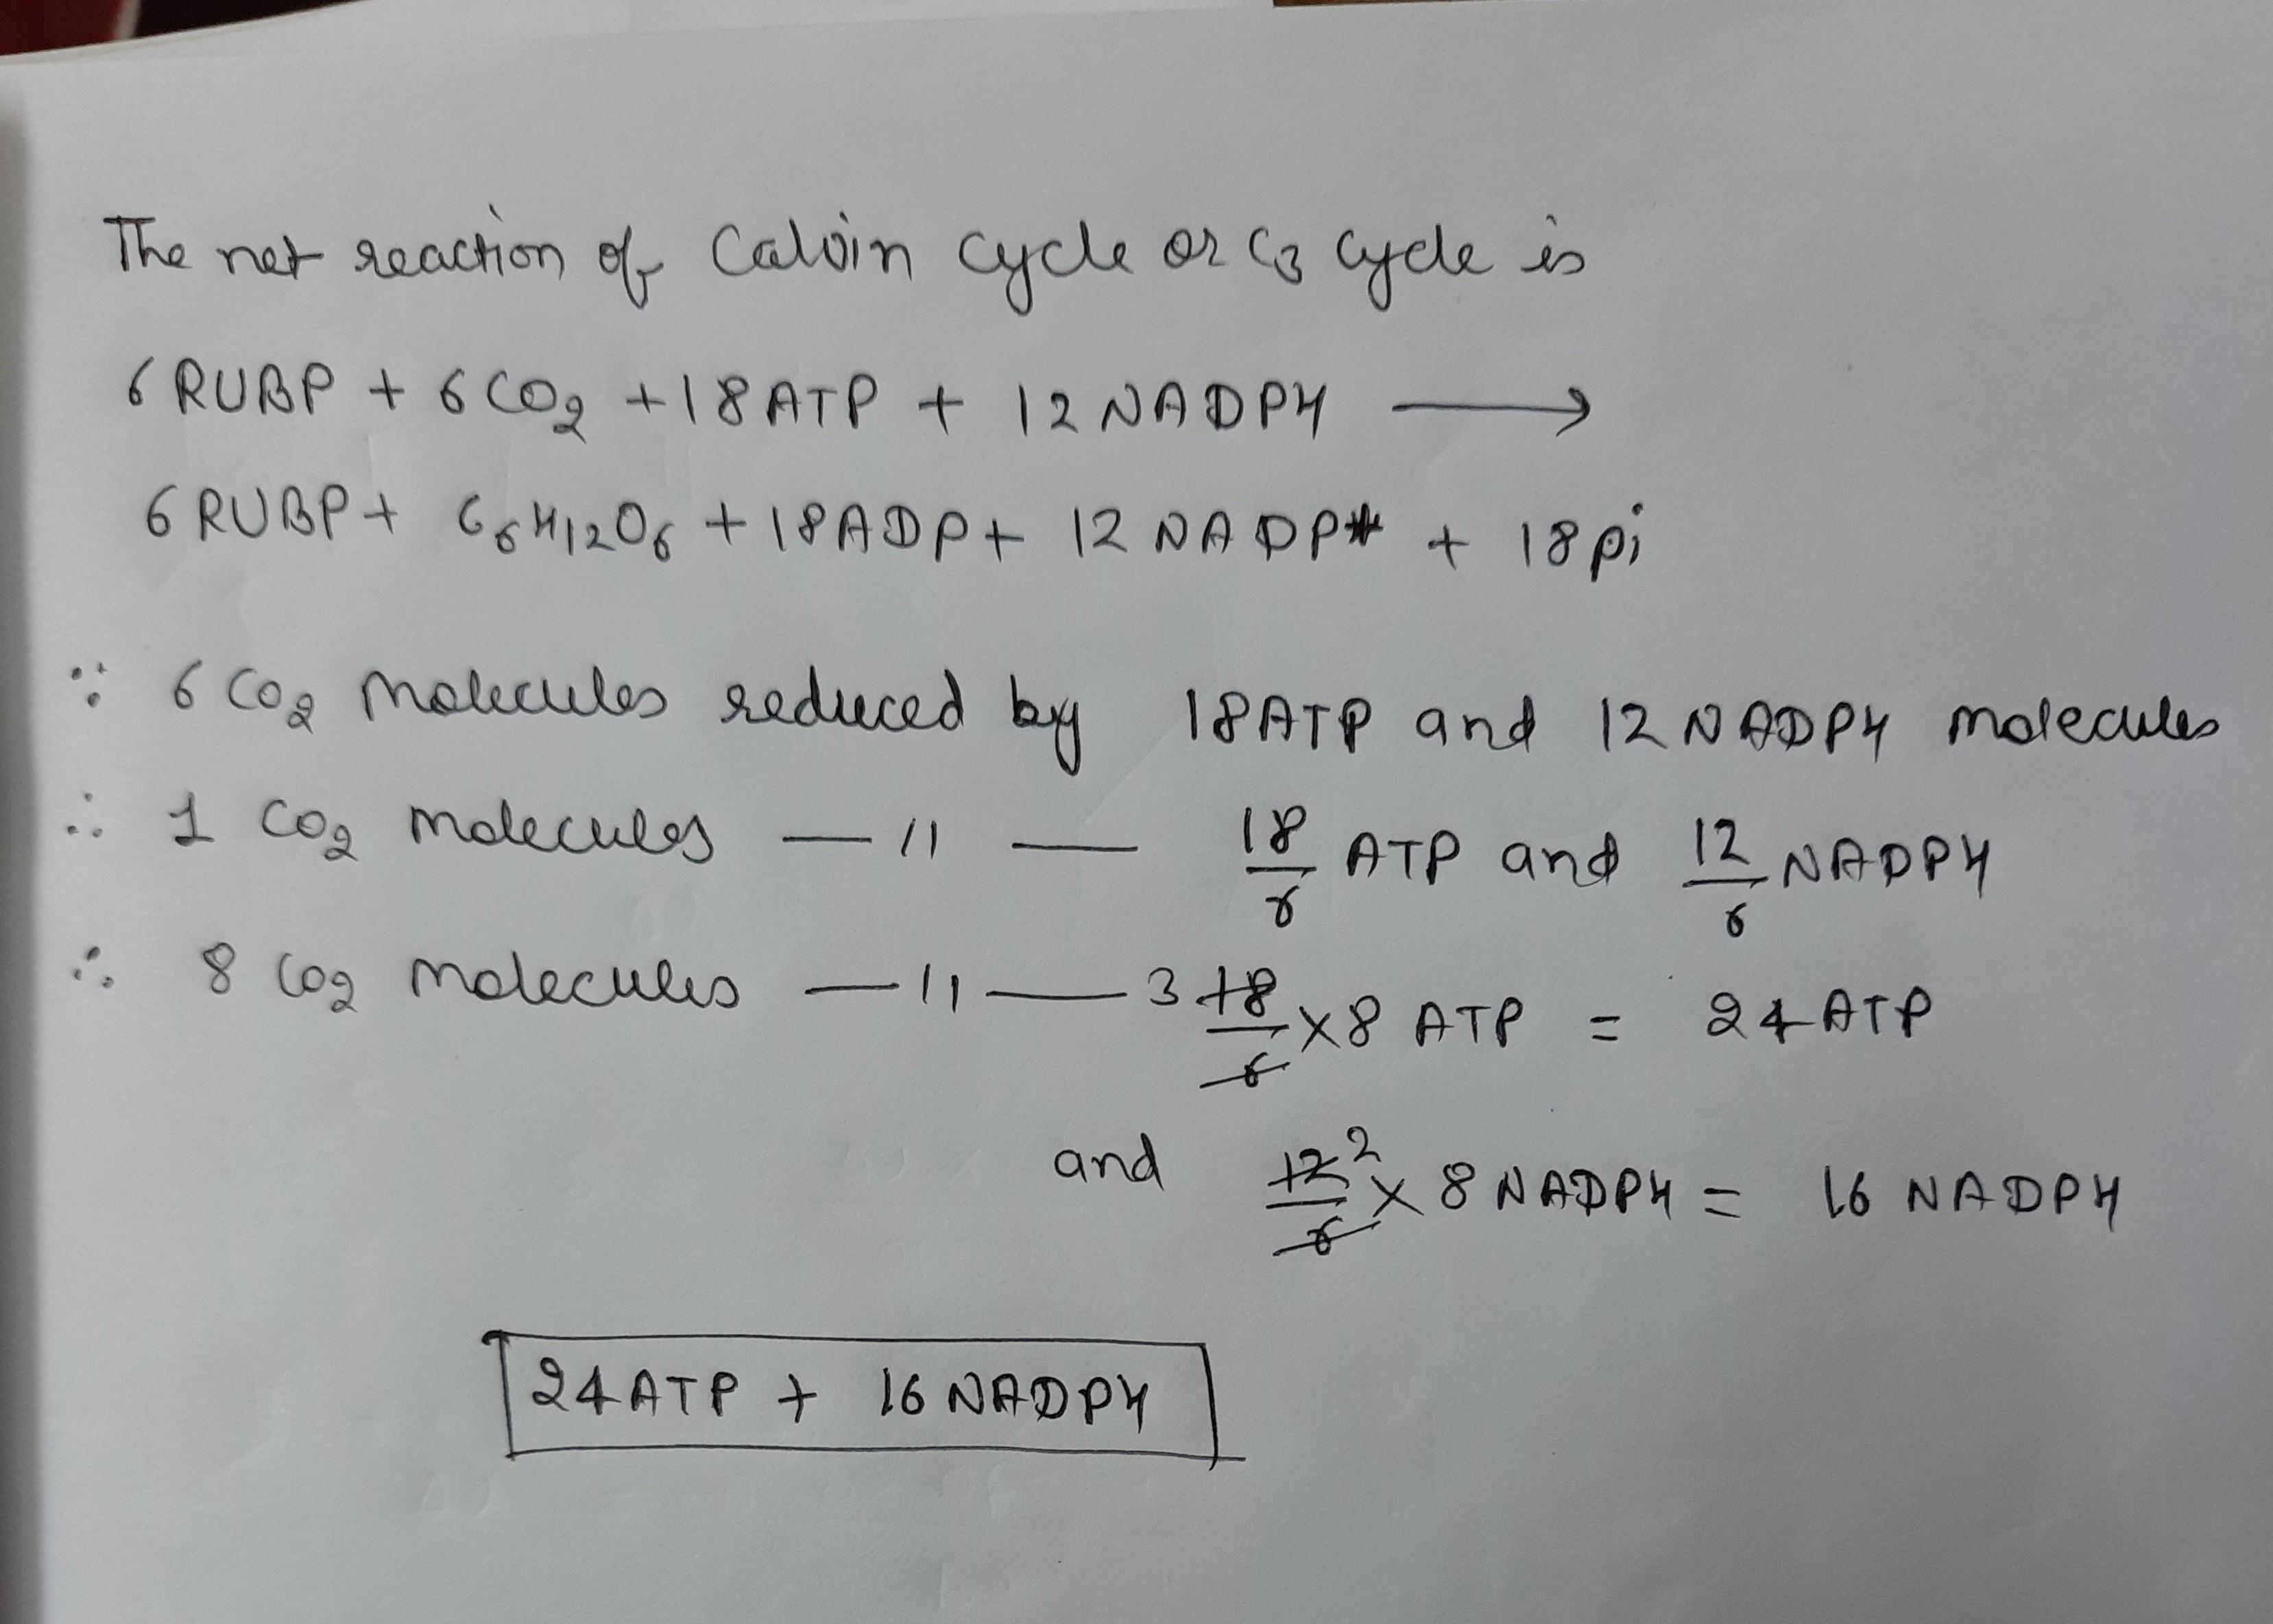 The net reaction of Calvin cycle or C3 cycle is
6 RUBP + 6 CO2 + 18 ATP + 12 NADPH ⟶
6 RUBP + C6H12O6 + 18 ADP + 12 NADP+ + 18 pi
∵ 6 CO2 molecules reduced by 18 ATP and 12 NADPH molecules
∴ 1 CO2 molecules — 11 — 18/6 ATP and 12/6 NADPH
∴ 8 CO2 molecules — 11 — 3 18/6 × 8 ATP = 24 ATP
and 12/6 2 × 8 NADPH = 16 NADPH
24 ATP + 16 NADPH